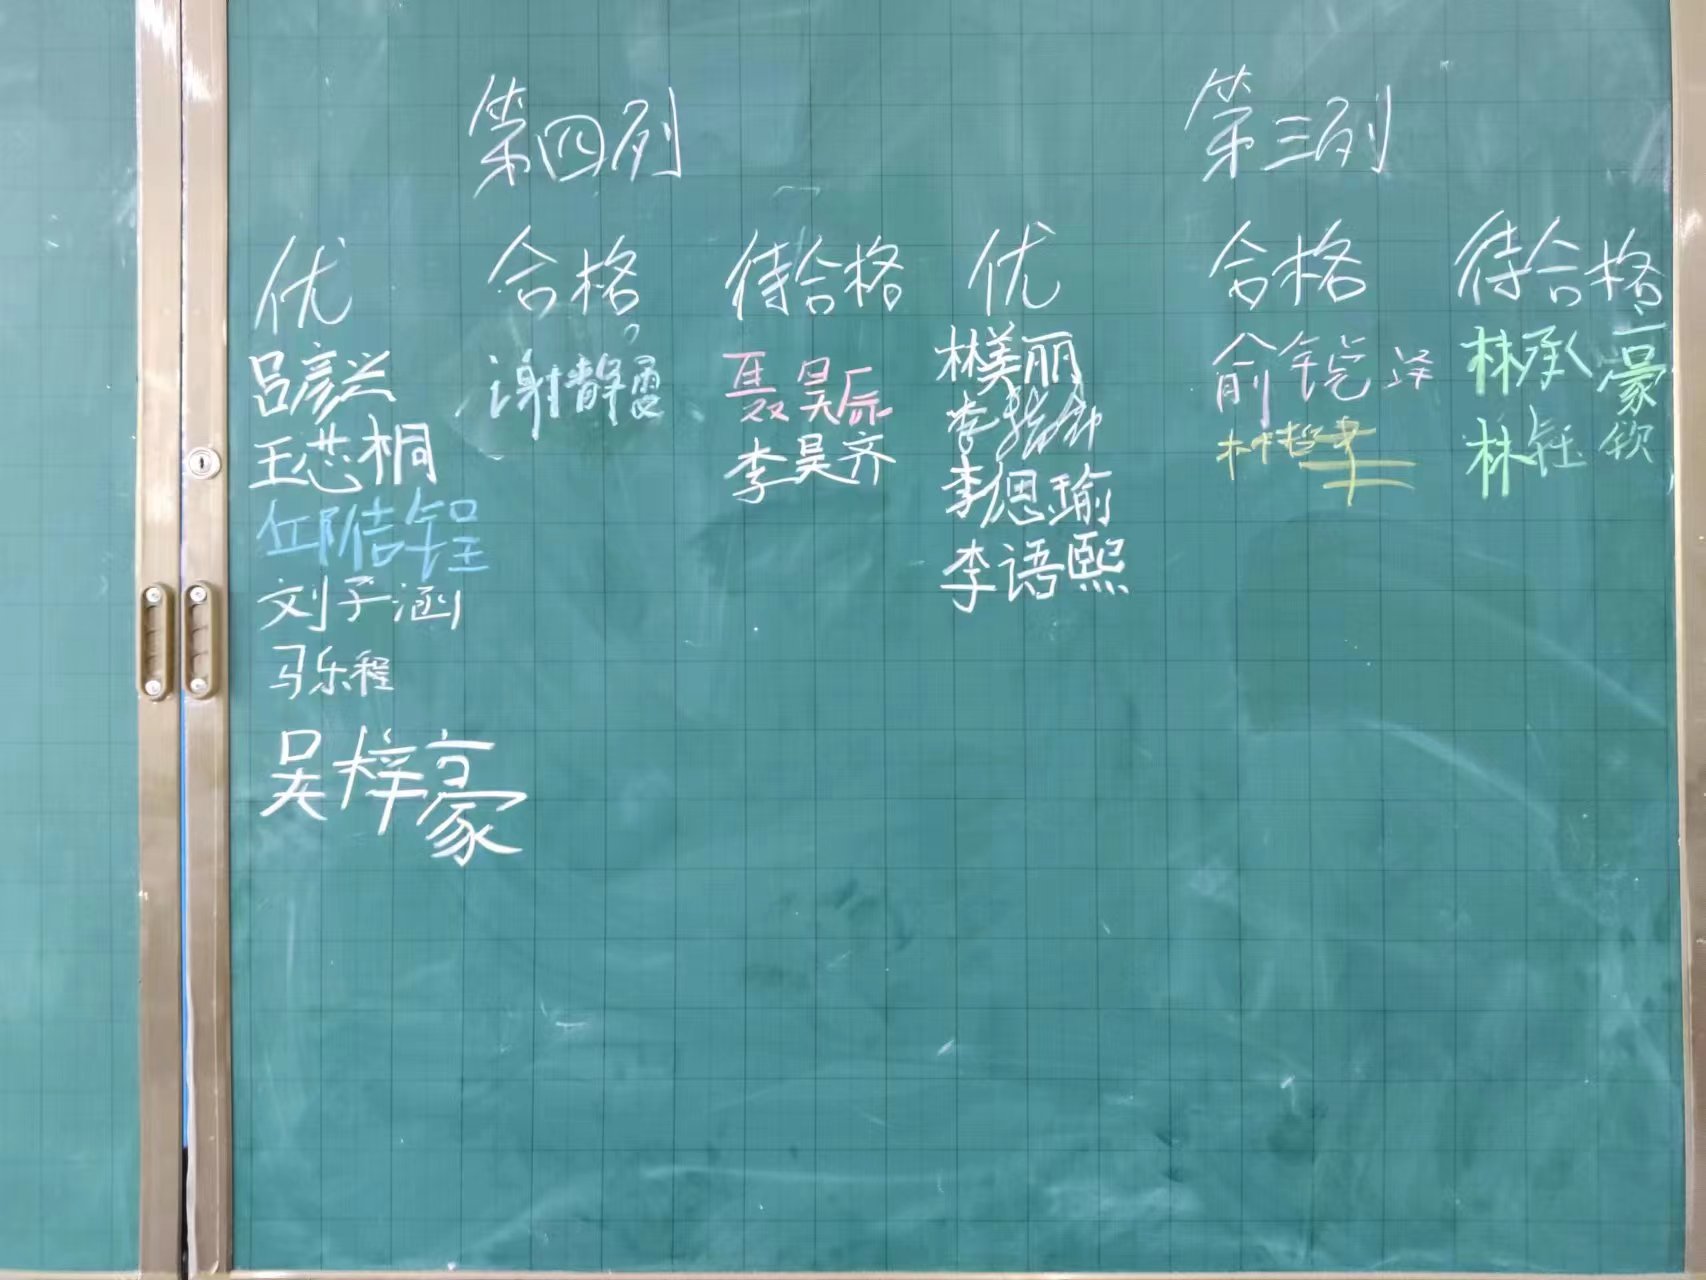 第四列
优
吕彦兴
王芯桐
邱信锃
刘子涵
马乐程
吴梓豪
合格
谢静雯
待合格
聂昊辰
李昊齐
第三列
优
林美丽
李
李恩瑜
李语熙
合格
俞锐泽
林哲
待合格
林承豪
林钰钦